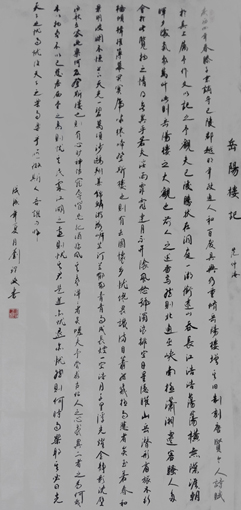 岳陽樓記 范仲淹
慶曆四年春滕子京謫守巴陵郡越明年政通人和百廢具興乃重修岳陽樓增其舊制刻唐賢今人詩賦
於其上屬予作文以記之予觀夫巴陵勝狀在洞庭一湖銜遠山吞長江浩浩湯湯橫無際涯朝
暉夕陰氣象萬千此則岳陽樓之大觀也前人之述備矣然則北通巫峽南極瀟湘遷客騷人多
會於此覽物之情得無異乎若夫霪雨霏霏連月不開陰風怒號濁浪排空日星隱曜山岳潛形商旅不行
檣傾楫摧薄暮冥冥虎嘯猿啼登斯樓也則有去國懷鄉憂讒畏譏滿目蕭然感極而悲者矣至若春和
景明波瀾不驚上下天光一碧萬頃沙鷗翔集錦鱗游泳岸芷汀蘭郁郁青青而或長煙一空皓月千里浮光耀金靜影沉璧
漁歌互答此樂何極登斯樓也則有心曠神怡寵辱皆忘把酒臨風其喜洋洋者矣嗟夫予嘗求古仁人之心或異二者之為何哉
不以物喜不以己悲居廟堂之高則憂其民處江湖之遠則憂其君是進亦憂退亦憂然則何時而樂耶其必曰先
天下之憂而憂後天下之樂而樂乎噫微斯人吾誰與歸
年夏月劉